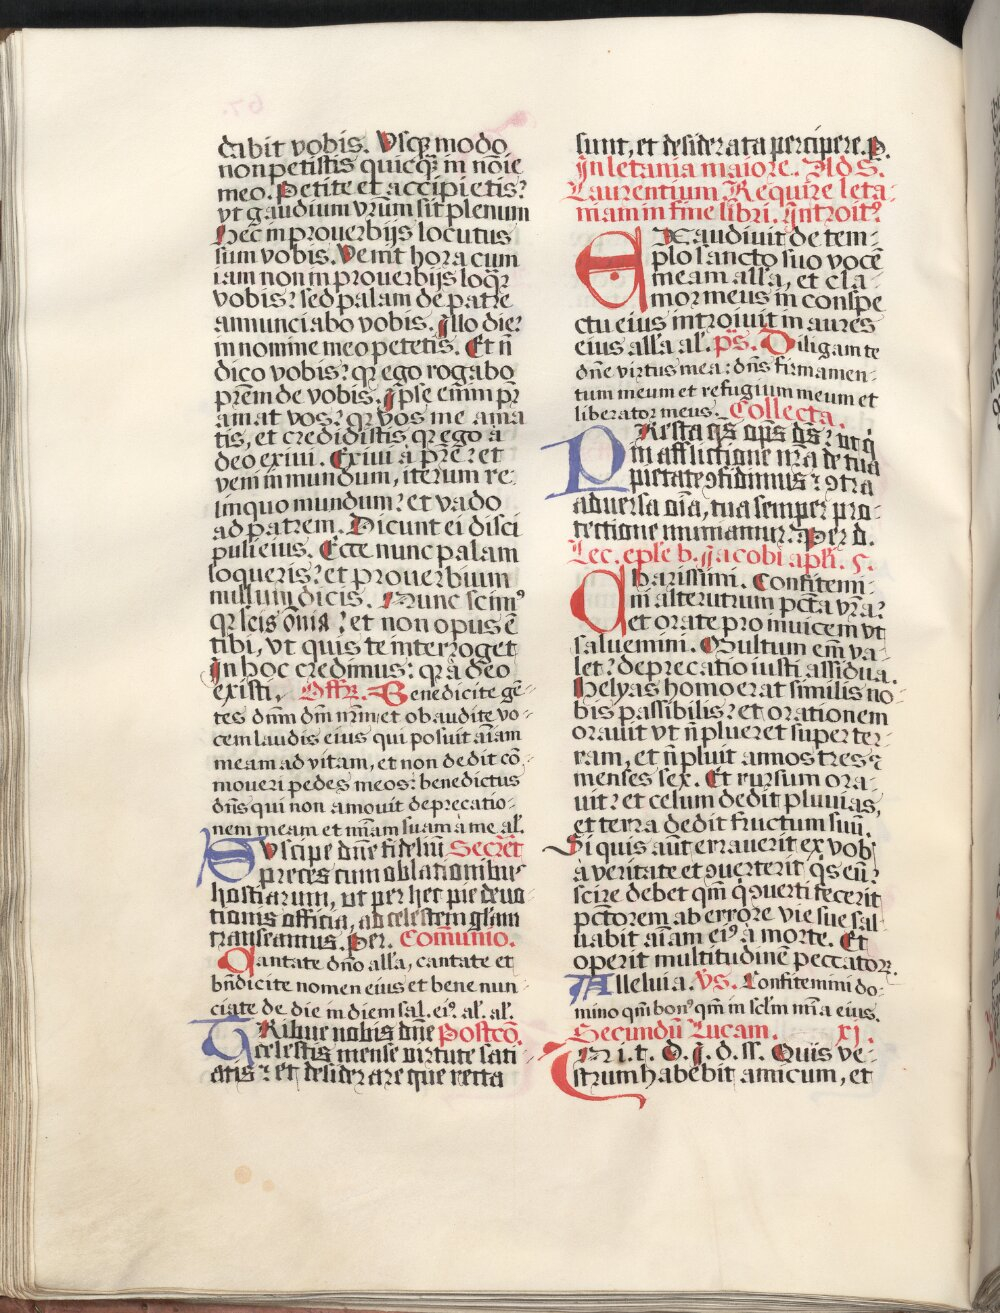 dabit vobis. Vsqꝫ modo
non petistis quicq̃ in nõie
meo. Petite et accipietis:
vt gaudium vr̃um sit plenum
Hec in prouerbijs locutus
sum vobis. Venit hora cum
iam non in prouerbijs loqr̃
vobis: sed palam de patre
annunciabo vobis. Illo die:
in nomine meo petetis. Et ñ
dico vobis: qꝛ ego rogabo
prẽm de vobis. Ipse enim pr̃
amat vos: qꝛ vos me ama
tis, et credidistis qꝛ ego à
deo exiui. Exiui a prẽ: et
veni in mundum, iterum re
linquo mundum: et vado
ad patrem. Dicunt ei disci
puli eius. Ecce nunc palam
loqueris: et prouerbium
nullum dicis. Nunc scimꝰ
qꝛ scis õnia: et non opus ẽ
tibi, vt quis te interroget
In hoc credimus: qꝛ à deo
existi. Offr̃. Benedicite gẽ-
tes dñm dm̃ nr̃m et obaudite vo-
cem laudis eius qui posuit aĩam
meam ad vitam, et non dedit cõ
moueri pedes meos: benedictus
dñs qui non amouit deprecatio-
nem meam et mĩam suam à me al̃.
Suscipe dñe fideliũ Secret̃
preces cum oblationibus
hostiarum, ut per hec pie deuo
tionis officia, ad celestem gl̃am
transeamus. Per. Cõmunio.
Cantate dño all̃a, cantate et
bñdicite nomen eius et bene nun
ciate de die in diem sal. eiꝰ. al̃. al̃.
Tribue nobis dñe Postcõ.
celestis mense virtute sati
atis: et desiderare que recta
sunt, et desiderata percipere. P.
In letania maiore. Ad S.
Laurentium Require leta-
niam in fine libri. Introitꝰ
EXaudiuit de tem-
plo sancto suo vocẽ
meam all̃a, et cla-
mor meus in conspe
ctu eius introiuit in aures
eius all̃a al̃. ps̃. Diligam te
dñe virtus mea: dñs firmamen-
tum meum et refugium meum et
liberator meus. Collecta.
PResta q̃s om̃ps ds̃: ut q̃
in afflictione nr̃a de tua
pietate ꝯfidimus: ꝯtra
aduersa oĩa, tua semper pro
tectione muniamur. Per d.
Lec. epl̃e b. Jacobi apl̃i. 5.
Charissimi. Confitemi-
ni alterutrum pctã vr̃a:
et orate pro inuicem vt
saluemini. Multum em̃ va-
let: deprecatio iusti assidua.
Helyas homo erat similis no-
bis passibilis: et orationem
orauit vt ñ plueret super ter-
ram, et ñ pluit annos tres:
menses sex. Et rursum ora-
uit: et celum dedit pluuias,
et terra dedit fructum suũ.
Si quis aũt errauerit ex vob̃
à veritate et ꝯuerterit q̃s eũ:
scire debet qm̃ q̃ ꝯuerti fecerit
pctõrem ab errore vie sue sal
uabit aĩam eiꝰ à morte. Et
operit multitudinẽ peccatoꝝ.
Alleluia. Vs. Confitemini do-
mino qm̃ bonꝰ qm̃ in scl̃m mĩa eius.
Secundũ Lucam. xi.
IN i. t. D. j. d. ss. Quis ve-
strum habebit amicum, et